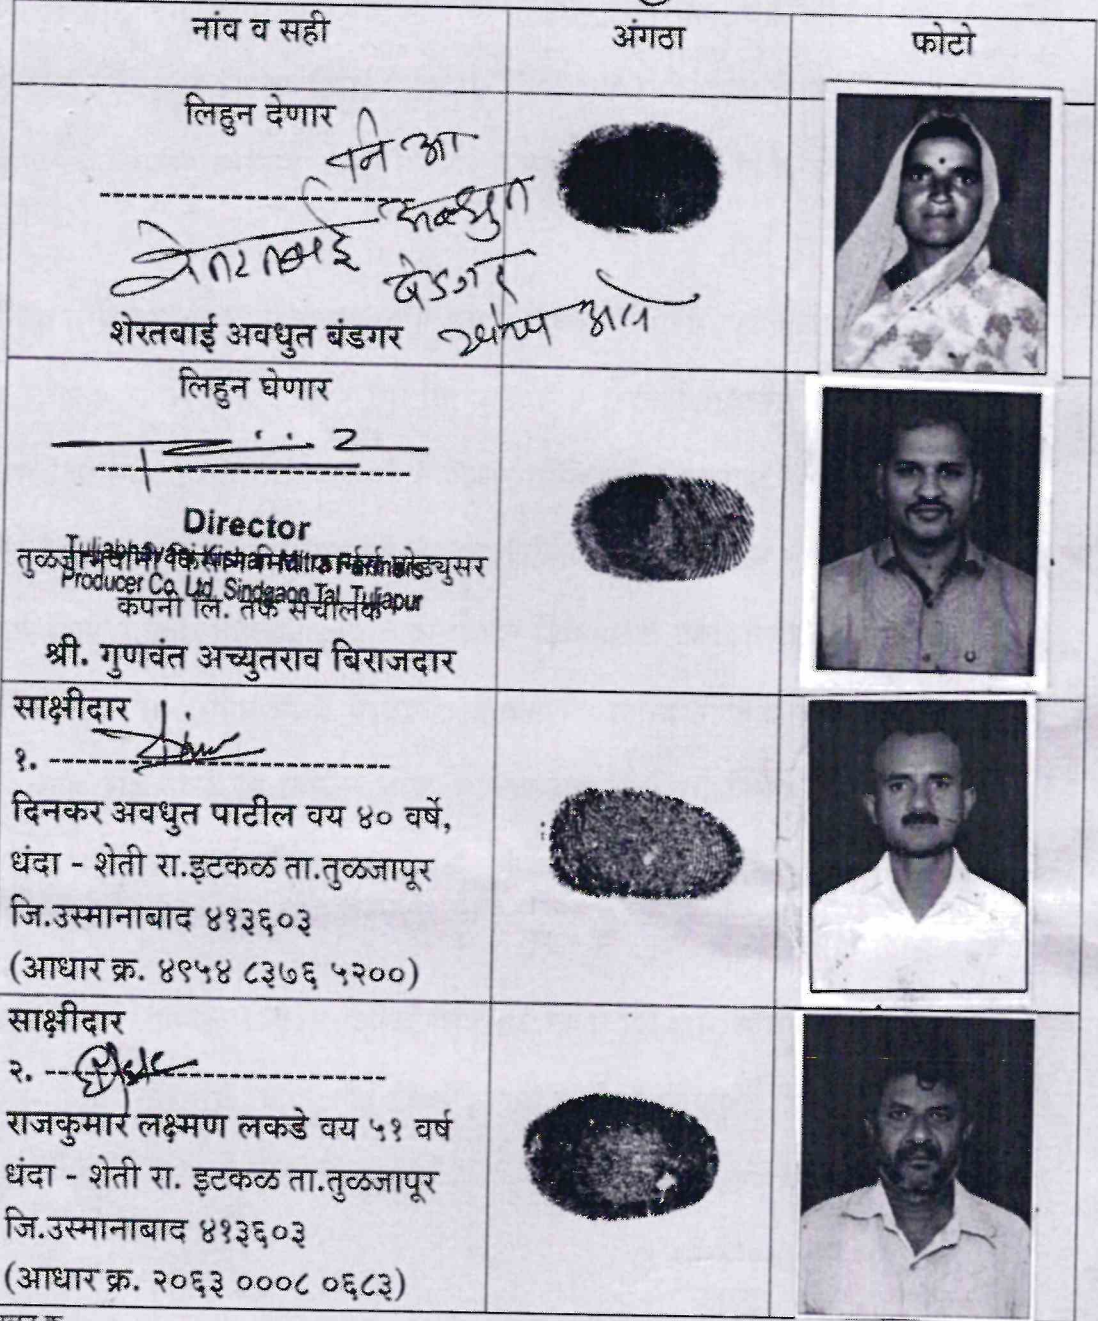 नांव व सही
अंगठा
फोटो
लिहुन देणार
नि आ
अवधुत
बंडगर
शेरतबाई अवधुत बंडगर
लिहुन घेणार
Director
Tuljabhavani Krishak Mitra Farmers
तुळजाभवानी किसान मित्र फार्मर्स प्रोड्युसर
Producer Co. Ltd. Sindgaon Tal. Tuljapur
कंपनी लि. तर्फे संचालक
श्री. गुणवंत अच्युतराव बिराजदार
साक्षीदार
१.
दिनकर अवधुत पाटील वय ४० वर्षे,
धंदा - शेती रा.इटकळ ता.तुळजापूर
जि.उस्मानाबाद ४१३६०३
(आधार क्र. ४९५४ ८३७६ ५२००)
साक्षीदार
२.
राजकुमार लक्ष्मण लकडे वय ५१ वर्ष
धंदा - शेती रा. इटकळ ता.तुळजापूर
जि.उस्मानाबाद ४१३६०३
(आधार क्र. २०६३ ०००८ ०६८३)